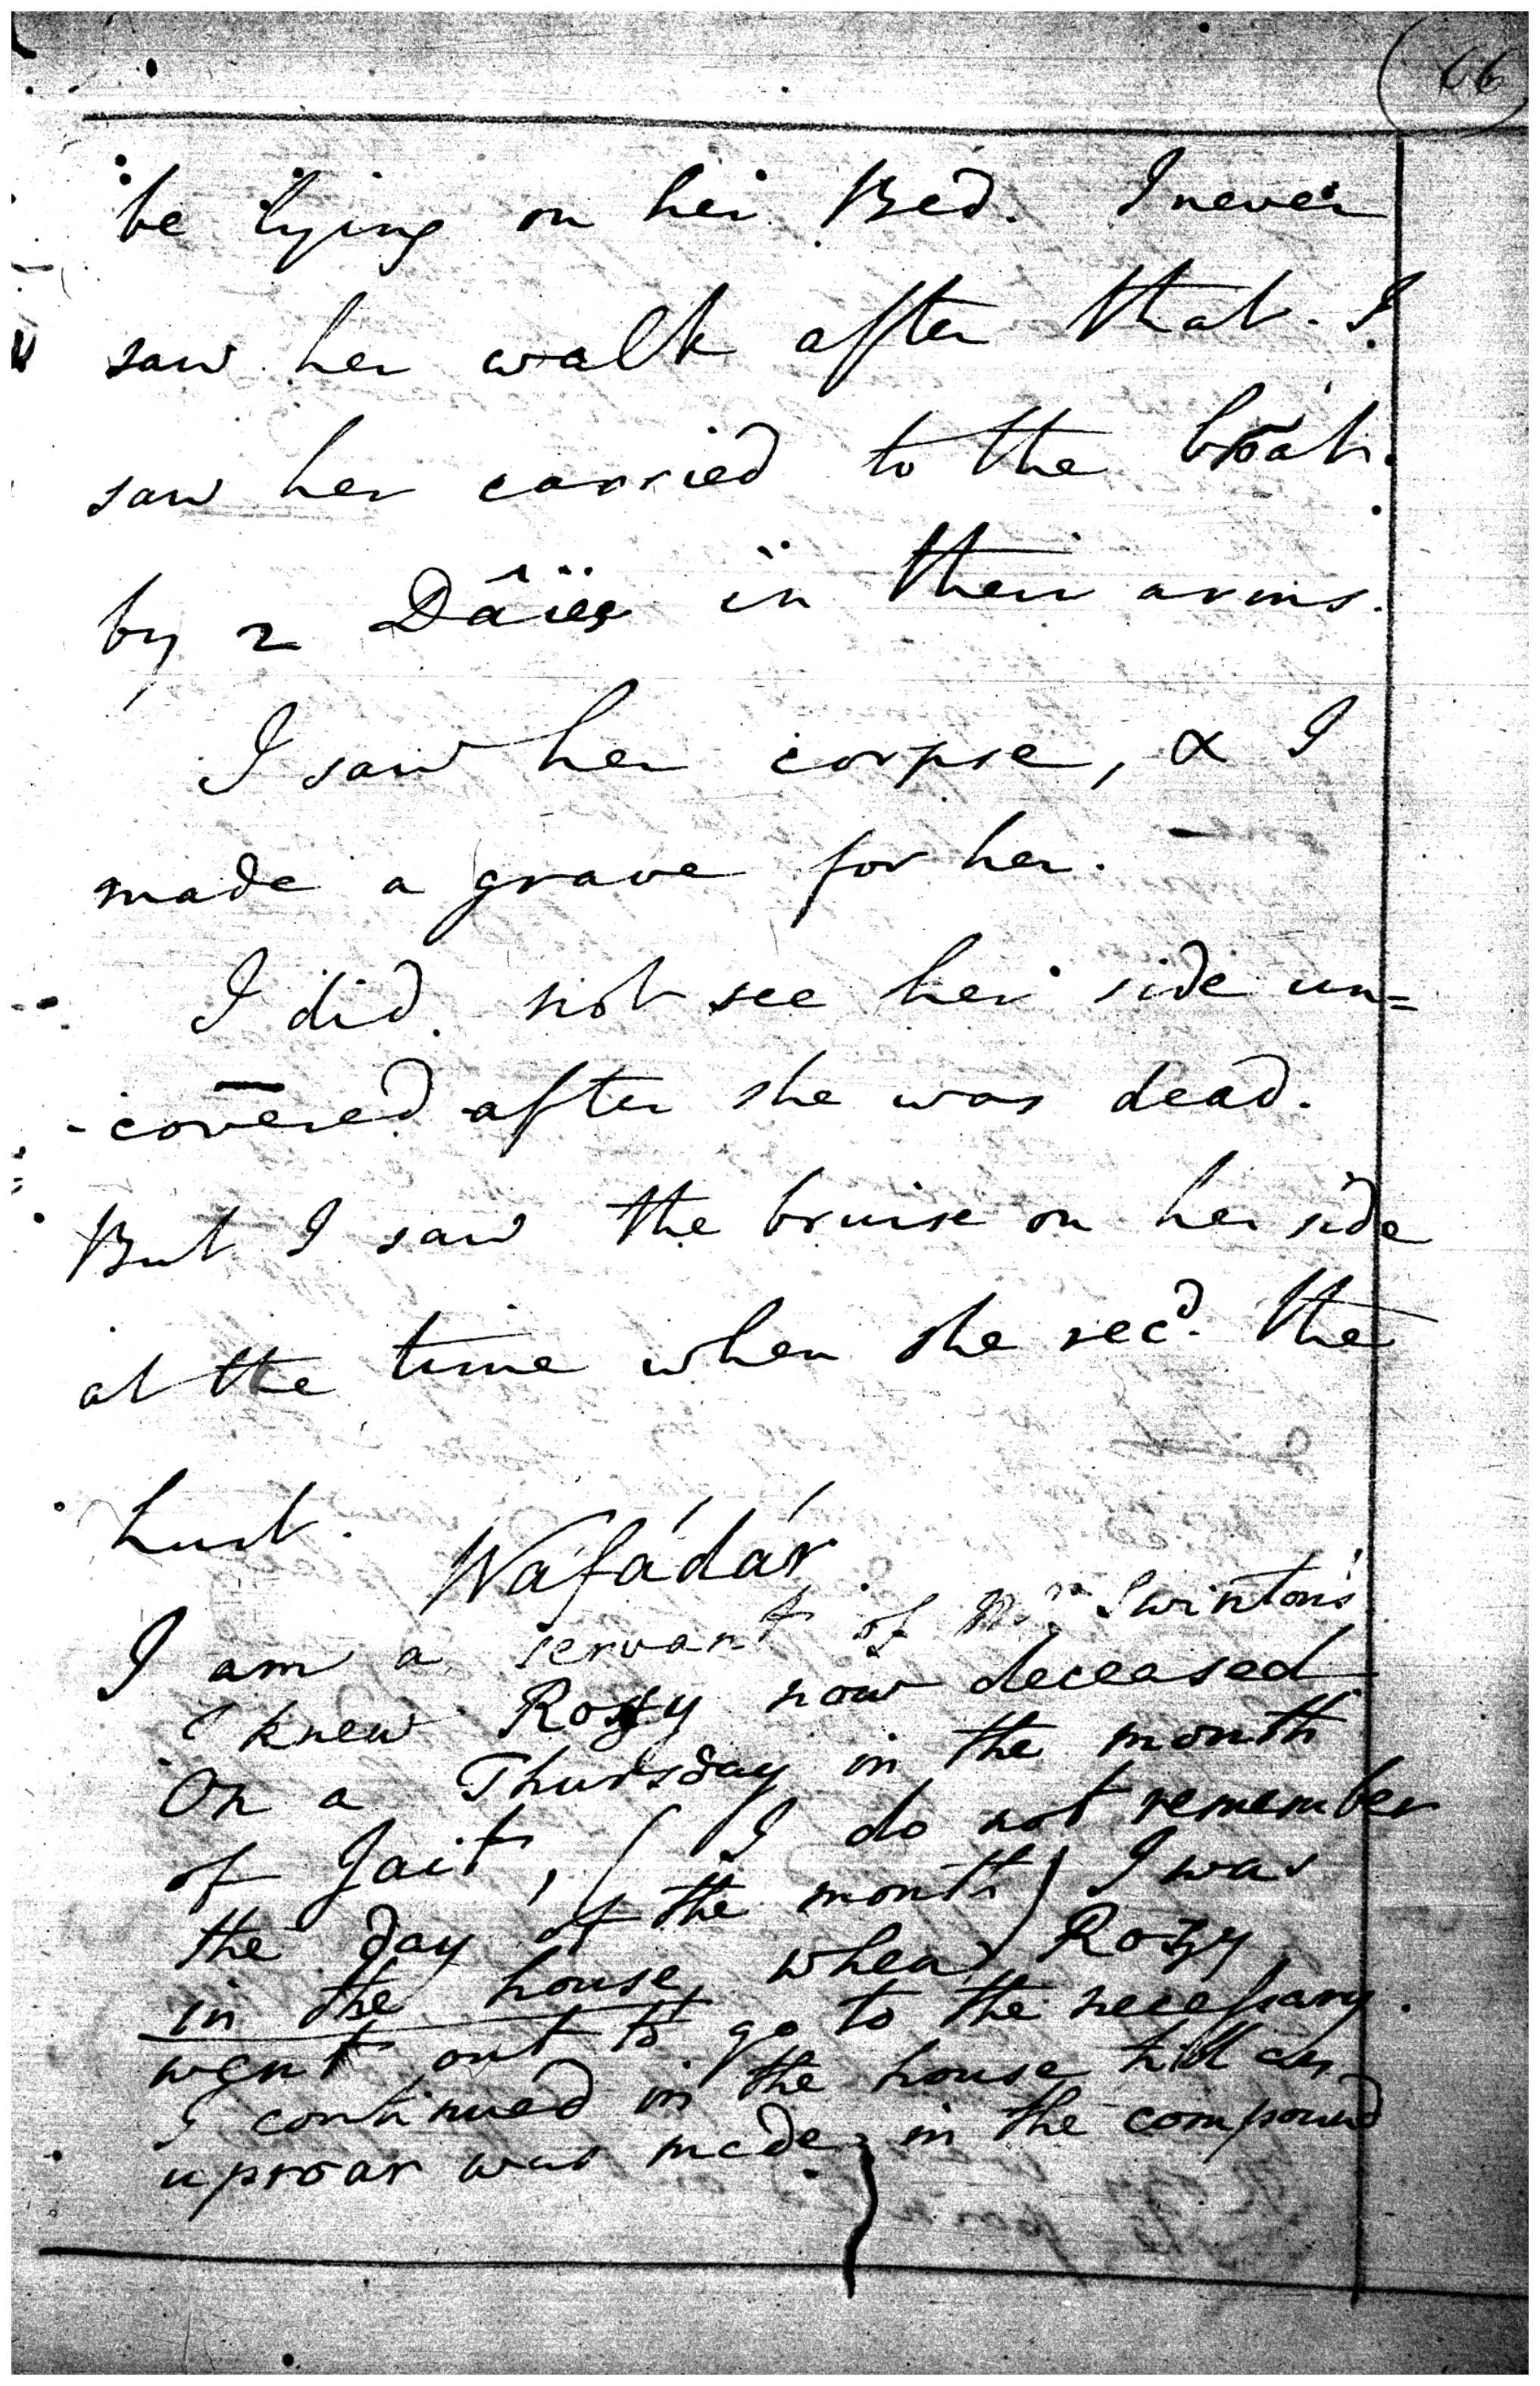 66
be lying on her Bed. I never
saw her walk after that. I
saw her carried to the boat
by 2 Dâïes in their arms.
I saw her corpse, & I
made a grave for her.
I did not see her side un=
-covered after she was dead.
But I saw the bruise on her side
at the time when she recd. the
hurt.
Wafádár
I am a servant of Mr Swinton's
I knew Rozy now deceased
On a Thursday in the month
of Jait, ( I do not remember
the day of the month) I was
in the house, when Rozy
went out to go to the necessary.
I continued in the house till an
uproar was made in the compound